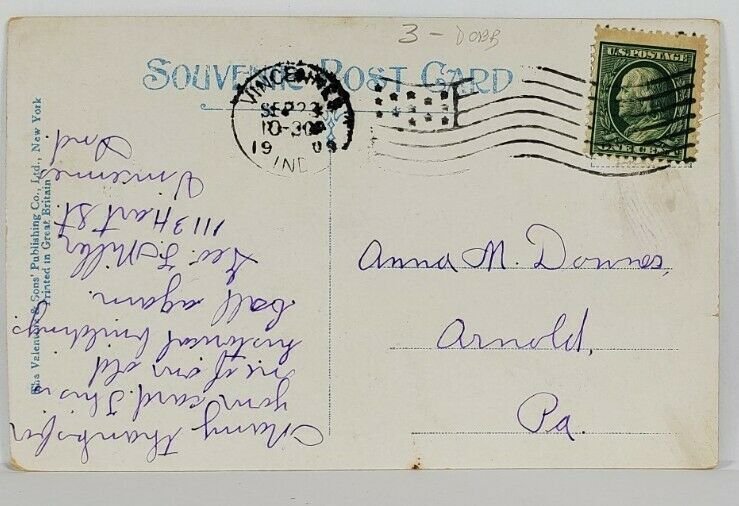 3 - DORR
SOUVENIR POST CARD
VINCENNES
SEP 23
10-30A
1909
IND.
U.S. POSTAGE
ONE CENT
Anna M. Downes,
Arnold,
Pa.
Many thanks for
your card. This is
one of our old
historical buildings
Call again.
Geo. F. Miller
1113 Hart St.
Vincennes
Ind
The Valentine & Sons' Publishing Co., Ltd., New York
Printed in Great Britain